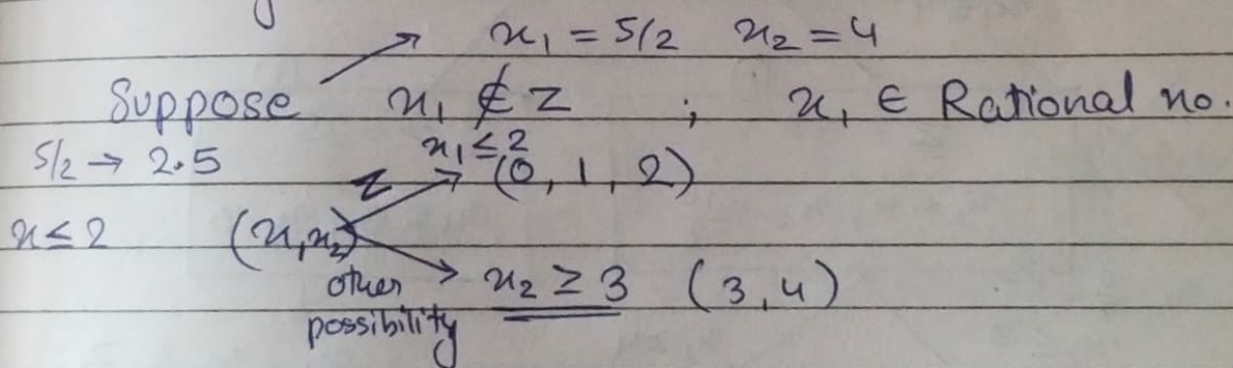 x₁ = 5/2 x₂ = 4
Suppose x₁ ∉ Z ; x₁ ∈ Rational no.
5/2 → 2.5 x₁ ≤ 2
Z (0, 1, 2)
x ≤ 2 (x₁, x₂)
other x₂ ≥ 3 (3, 4)
possibility